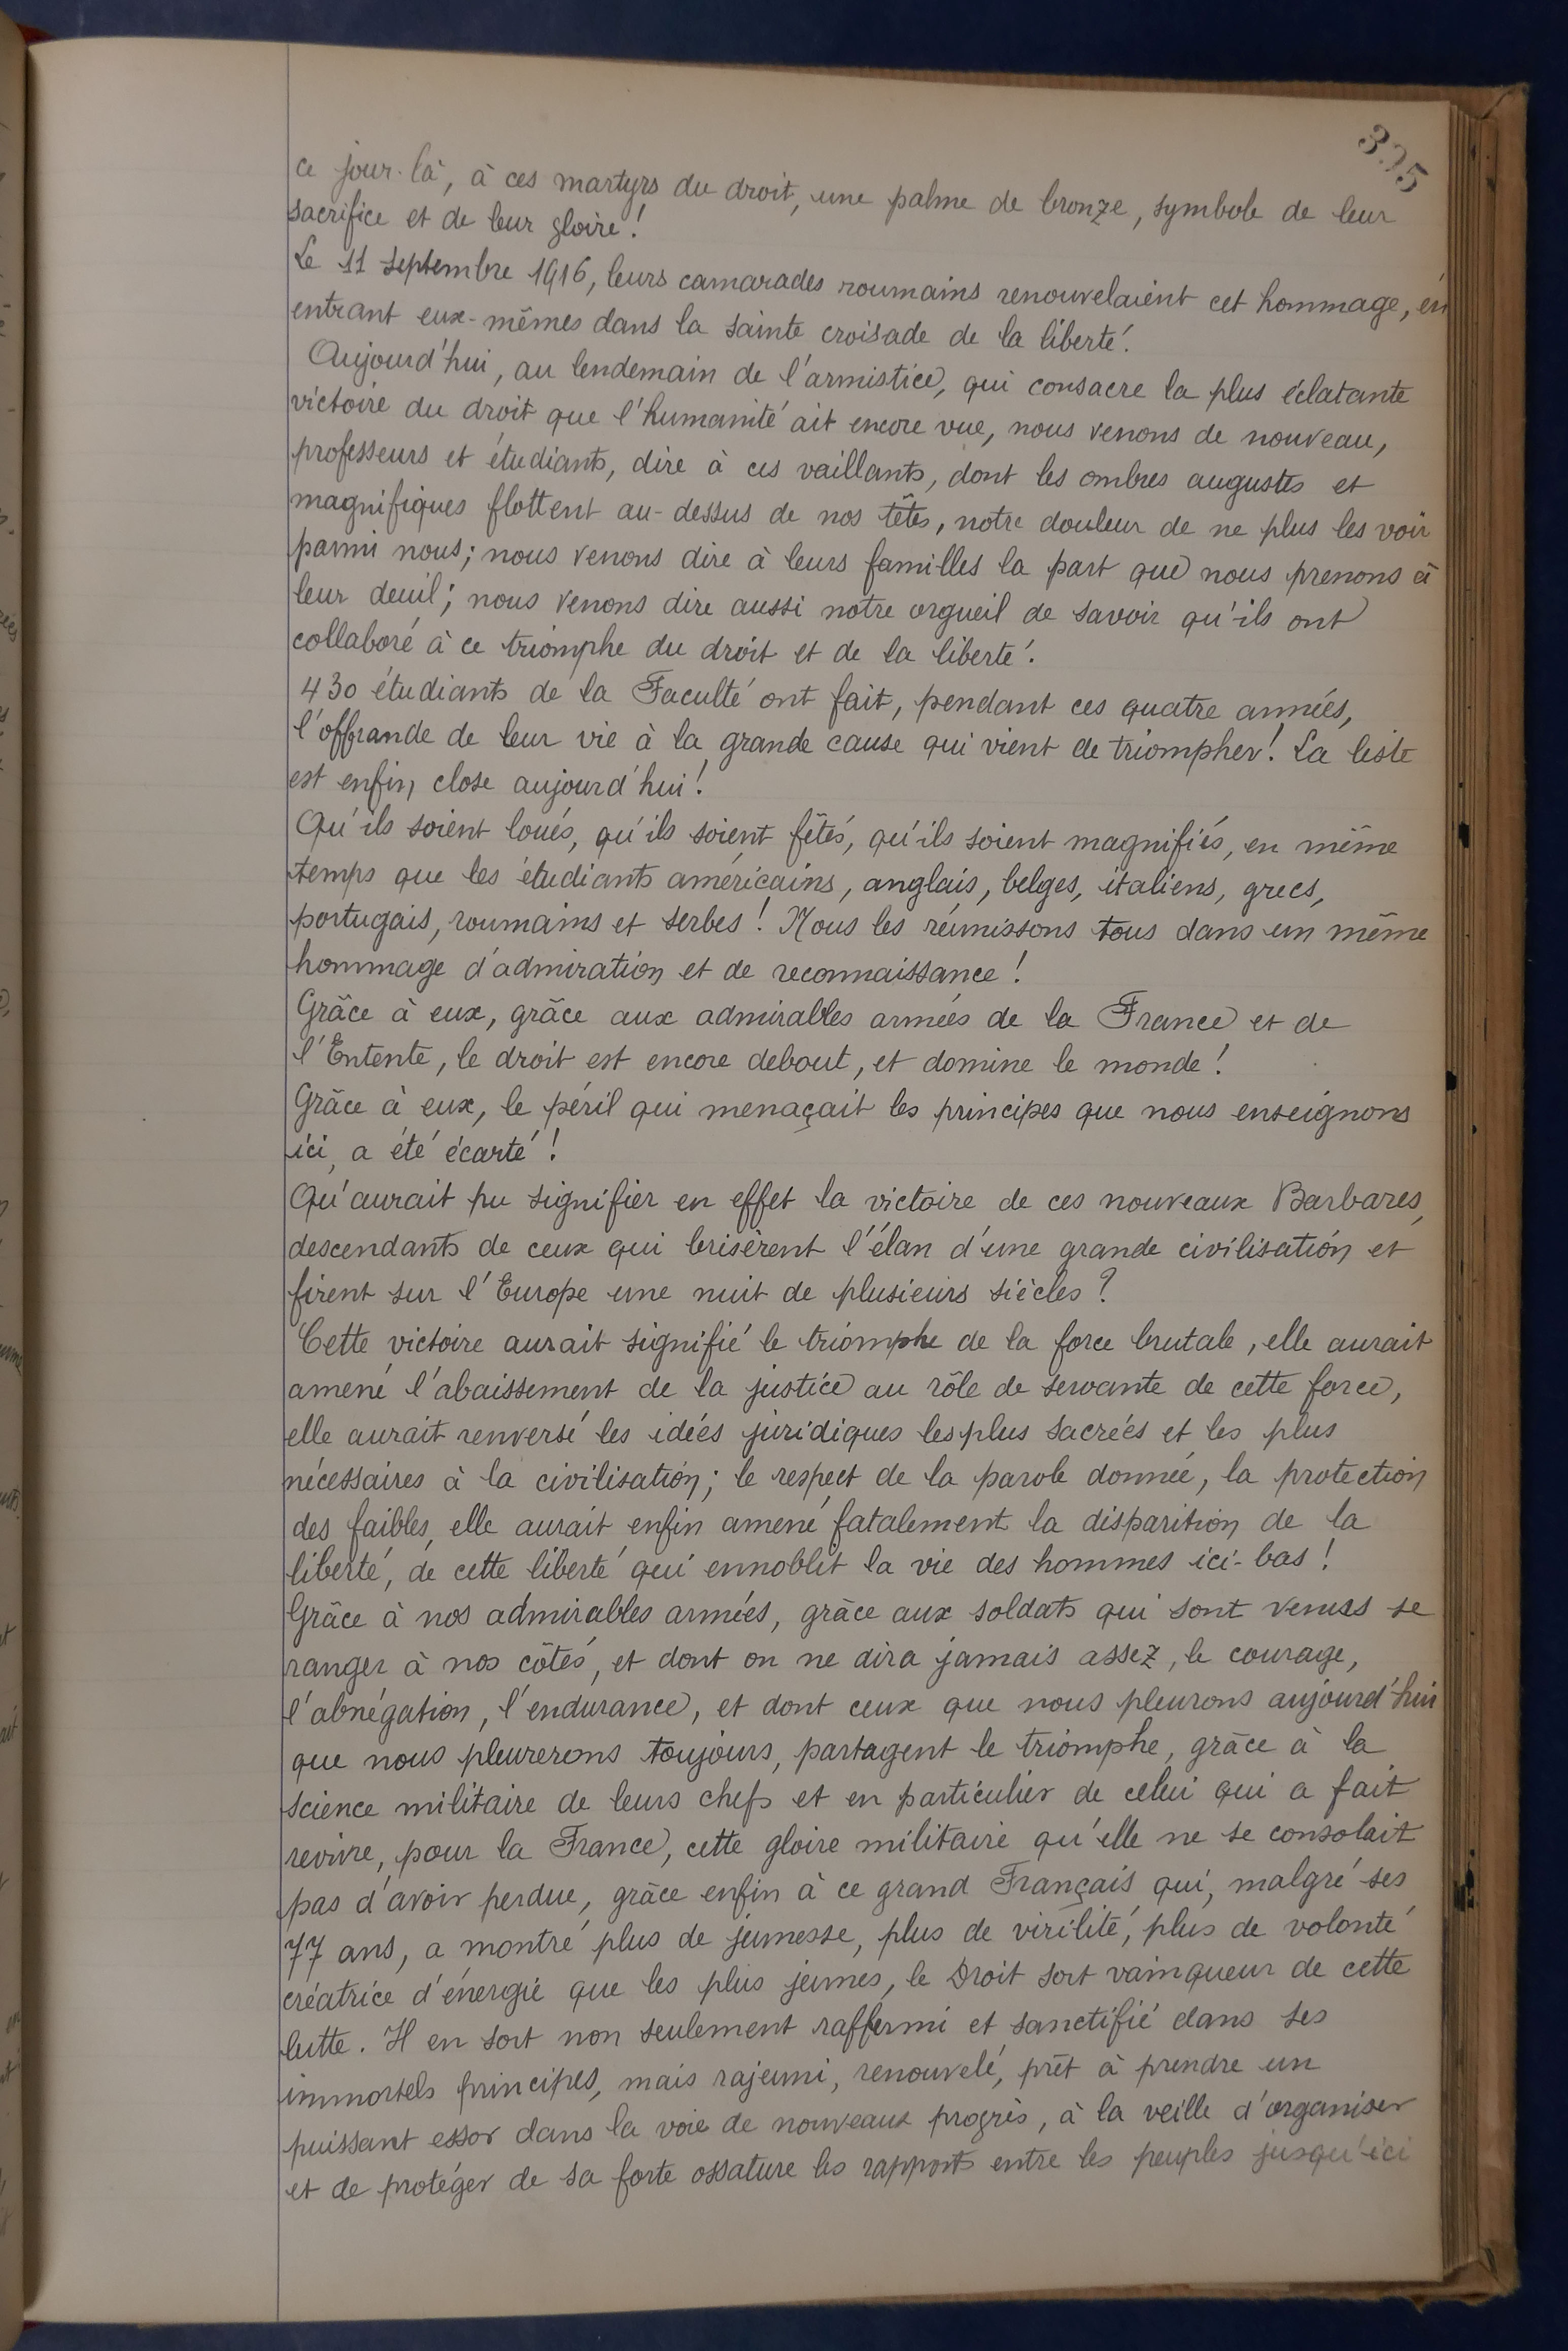 305
ce jour-là, à ces martyrs du droit, une palme de bronze, symbole de leur
sacrifice et de leur gloire!
Le 11 septembre 1916, leurs camarades roumains renouvelaient cet hommage, en
entrant eux-mêmes dans la sainte croisade de la liberté.
Aujourd'hui, au lendemain de l'armistice, qui consacre la plus éclatante
victoire du droit que l'humanité ait encore vue, nous venons de nouveau,
professeurs et étudiants, dire à ces vaillants, dont les ombres augustes et
magnifiques flottent au-dessus de nos têtes, notre douleur de ne plus les voir
parmi nous; nous venons dire à leurs familles la part que nous prenons à
leur deuil; nous venons dire aussi notre orgueil de savoir qu'ils ont
collaboré à ce triomphe du droit et de la liberté.
430 étudiants de la Faculté ont fait, pendant ces quatre années,
l'offrande de leur vie à la grande cause qui vient de triompher! La liste
est enfin close aujourd'hui!
Qu'ils soient loués, qu'ils soient fêtés, qu'ils soient magnifiés, en même
temps que les étudiants américains, anglais, belges, italiens, grecs,
portugais, roumains et serbes! Nous les réunissons tous dans un même
hommage d'admiration et de reconnaissance!
Grâce à eux, grâce aux admirables armées de la France et de
l'Entente, le droit est encore debout, et domine le monde!
Grâce à eux, le péril qui menaçait les principes que nous enseignons
ici, a été écarté!
Qu'aurait pu signifier en effet la victoire de ces nouveaux Barbares,
descendants de ceux qui brisèrent l'élan d'une grande civilisation et
firent sur l'Europe une nuit de plusieurs siècles?
Cette victoire aurait signifié le triomphe de la force brutale, elle aurait
amené l'abaissement de la justice au rôle de servante de cette force,
elle aurait renversé les idées juridiques les plus sacrées et les plus
nécessaires à la civilisation; le respect de la parole donnée, la protection
des faibles, elle aurait enfin amené fatalement la disparition de la
liberté, de cette liberté qui ennoblit la vie des hommes ici-bas!
Grâce à nos admirables armées, grâce aux soldats qui sont venus se
ranger à nos côtés, et dont on ne dira jamais assez, le courage,
l'abnégation, l'endurance, et dont ceux que nous pleurons aujourd'hui
que nous pleurerons toujours, partagent le triomphe, grâce à la
science militaire de leurs chefs et en particulier de celui qui a fait
revivre, pour la France, cette gloire militaire qu'elle ne se consolait
pas d'avoir perdue, grâce enfin à ce grand Français qui, malgré ses
77 ans, a montré plus de jeunesse, plus de virilité, plus de volonté
créatrice d'énergie que les plus jeunes, le Droit sort vainqueur de cette
lutte. Il en sort non seulement raffermi et sanctifié dans ses
immortels principes, mais rajeuni, renouvelé, prêt à prendre un
puissant essor dans la voie de nouveaux progrès, à la veille d'organiser
et de protéger de sa forte ossature les rapports entre les peuples jusqu'ici